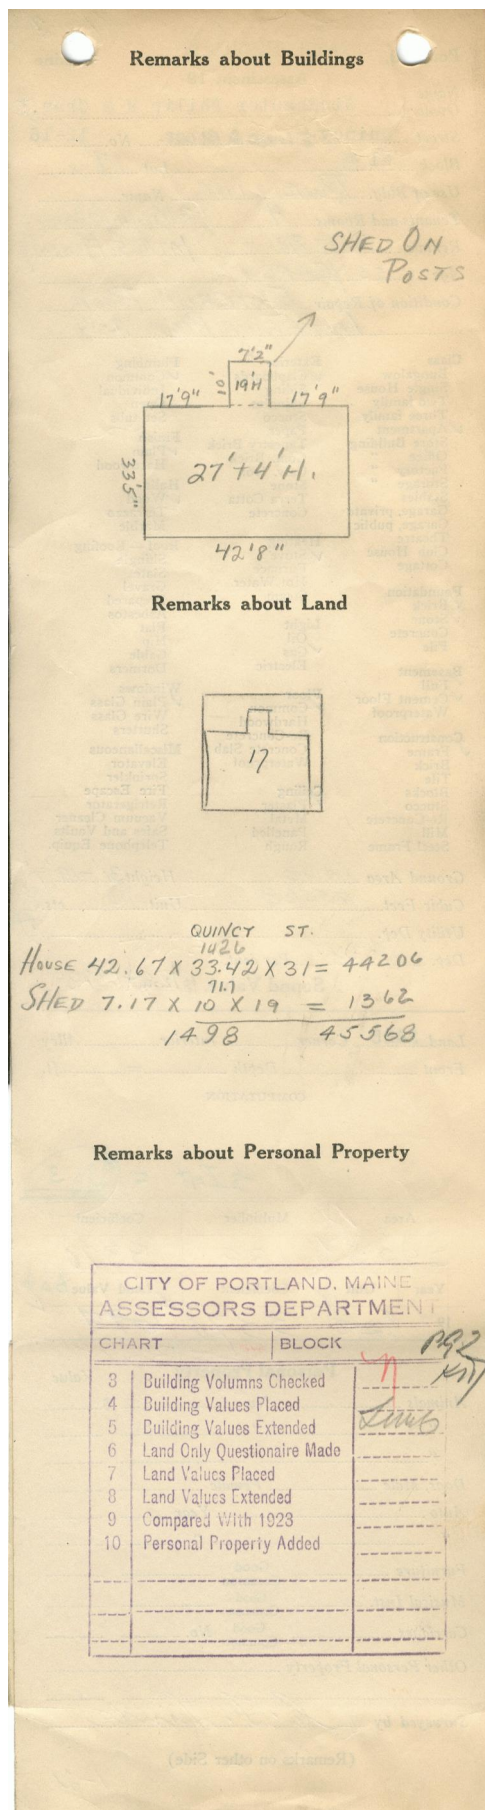 Remarks about Buildings
SHED ON
POSTS
7'2"
10'
19'H
17'9"
17'9"
33'5"
27'+4'H.
42'8"
Remarks about Land
17
QUINCY ST.
1426
HOUSE 42.67 X 33.42 X 31 = 44206
71.7
SHED 7.17 X 10 X 19 = 1362
1498 45568
Remarks about Personal Property
CITY OF PORTLAND, MAINE
ASSESSORS DEPARTMENT
CHART BLOCK
3 Building Volumns Checked
4 Building Values Placed
5 Building Values Extended
6 Land Only Questionaire Made
7 Land Values Placed
8 Land Values Extended
9 Compared With 1923
10 Personal Property Added